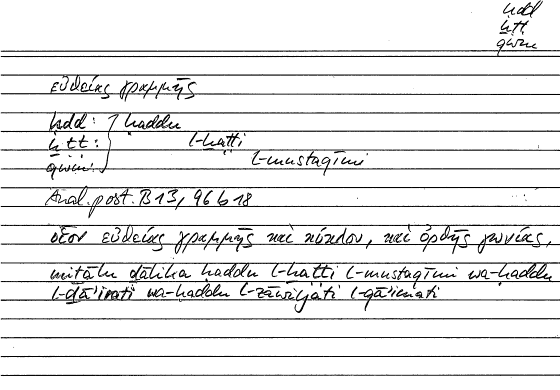 ḥdd
ḫṭṭ
qwm
εὐθείας γραμμῆς
ḥdd : } ḥaddu
ḫṭṭ : l-ḫaṭṭi
qwm : l-mustaqīmi
Anal. post. B 13, 96 b 18
οἷον εὐθείας γραμμῆς καὶ κύκλου, καὶ ὀρθῆς γωνίας,
miṯālu ḏālika ḥaddu l-ḫaṭṭi l-mustaqīmi wa-ḥaddu
l-dāʾirati wa-ḥaddu l-zāwiyati l-qāʾimati